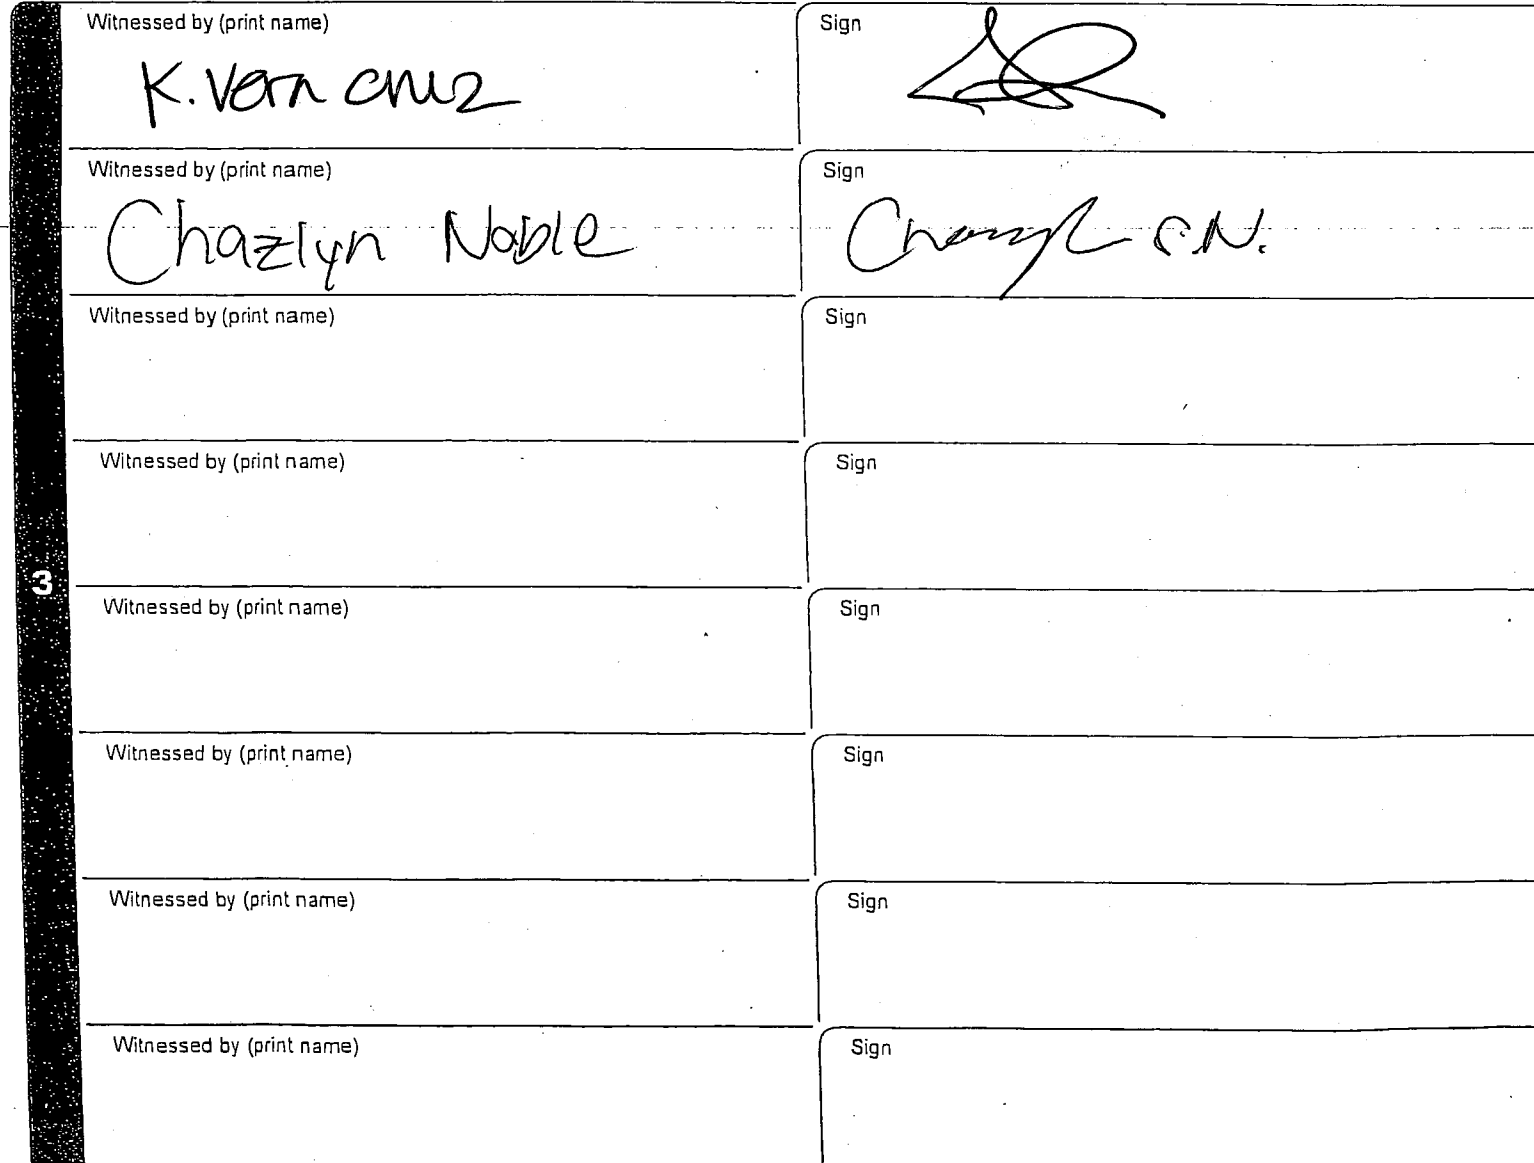 Witnessed by (print name) Sign
K. Vera Cruz
Witnessed by (print name) Sign
Chazlyn Noble
C.N.
Witnessed by (print name) Sign
Witnessed by (print name) Sign
3
Witnessed by (print name) Sign
Witnessed by (print name) Sign
Witnessed by (print name) Sign
Witnessed by (print name) Sign